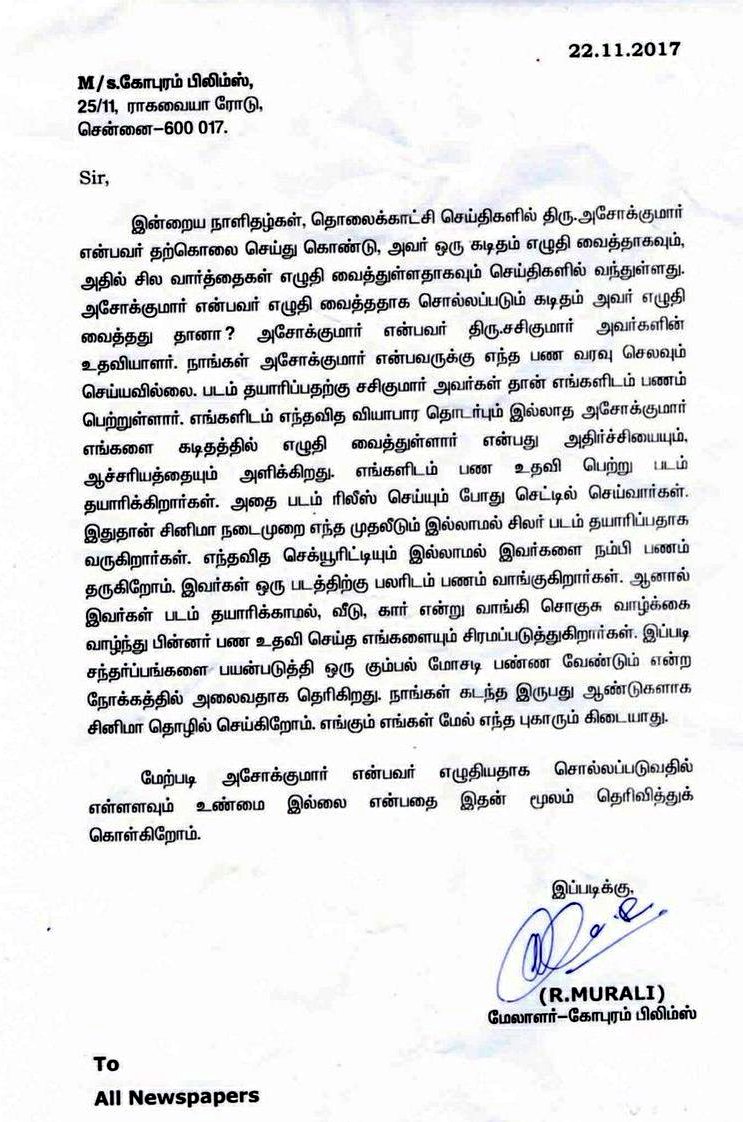 22.11.2017
M/s.கோபுரம் பிலிம்ஸ்,
25/11, ராகவையா ரோடு,
சென்னை-600 017.
Sir,
இன்றைய நாளிதழ்கள், தொலைக்காட்சி செய்திகளில் திரு.அசோக்குமார்
என்பவர் தற்கொலை செய்து கொண்டு, அவர் ஒரு கடிதம் எழுதி வைத்தாகவும்,
அதில் சில வார்த்தைகள் எழுதி வைத்துள்ளதாகவும் செய்திகளில் வந்துள்ளது.
அசோக்குமார் என்பவர் எழுதி வைத்ததாக சொல்லப்படும் கடிதம் அவர் எழுதி
வைத்தது தானா? அசோக்குமார் என்பவர் திரு.சசிகுமார் அவர்களின்
உதவியாளர். நாங்கள் அசோக்குமார் என்பவருக்கு எந்த பண வரவு செலவும்
செய்யவில்லை. படம் தயாரிப்பதற்கு சசிகுமார் அவர்கள் தான் எங்களிடம் பணம்
பெற்றுள்ளார். எங்களிடம் எந்தவித வியாபார தொடர்பும் இல்லாத அசோக்குமார்
எங்களை கடிதத்தில் எழுதி வைத்துள்ளார் என்பது அதிர்ச்சியையும்,
ஆச்சரியத்தையும் அளிக்கிறது. எங்களிடம் பண உதவி பெற்று படம்
தயாரிக்கிறார்கள். அதை படம் ரிலீஸ் செய்யும் போது செட்டில் செய்வார்கள்.
இதுதான் சினிமா நடைமுறை எந்த முதலீடும் இல்லாமல் சிலர் படம் தயாரிப்பதாக
வருகிறார்கள். எந்தவித செக்யூரிட்டியும் இல்லாமல் இவர்களை நம்பி பணம்
தருகிறோம். இவர்கள் ஒரு படத்திற்கு பலரிடம் பணம் வாங்குகிறார்கள். ஆனால்
இவர்கள் படம் தயாரிக்காமல், வீடு, கார் என்று வாங்கி சொகுசு வாழ்க்கை
வாழ்ந்து பின்னர் பண உதவி செய்த எங்களையும் சிரமப்படுத்துகிறார்கள். இப்படி
சந்தர்ப்பங்களை பயன்படுத்தி ஒரு கும்பல் மோசடி பண்ண வேண்டும் என்ற
நோக்கத்தில் அலைவதாக தெரிகிறது. நாங்கள் கடந்த இருபது ஆண்டுகளாக
சினிமா தொழில் செய்கிறோம். எங்கும் எங்கள் மேல் எந்த புகாரும் கிடையாது.
மேற்படி அசோக்குமார் என்பவர் எழுதியதாக சொல்லப்படுவதில்
எள்ளளவும் உண்மை இல்லை என்பதை இதன் மூலம் தெரிவித்துக்
கொள்கிறோம்.
இப்படிக்கு,
(R.MURALI)
மேலாளர்-கோபுரம் பிலிம்ஸ்
To
All Newspapers